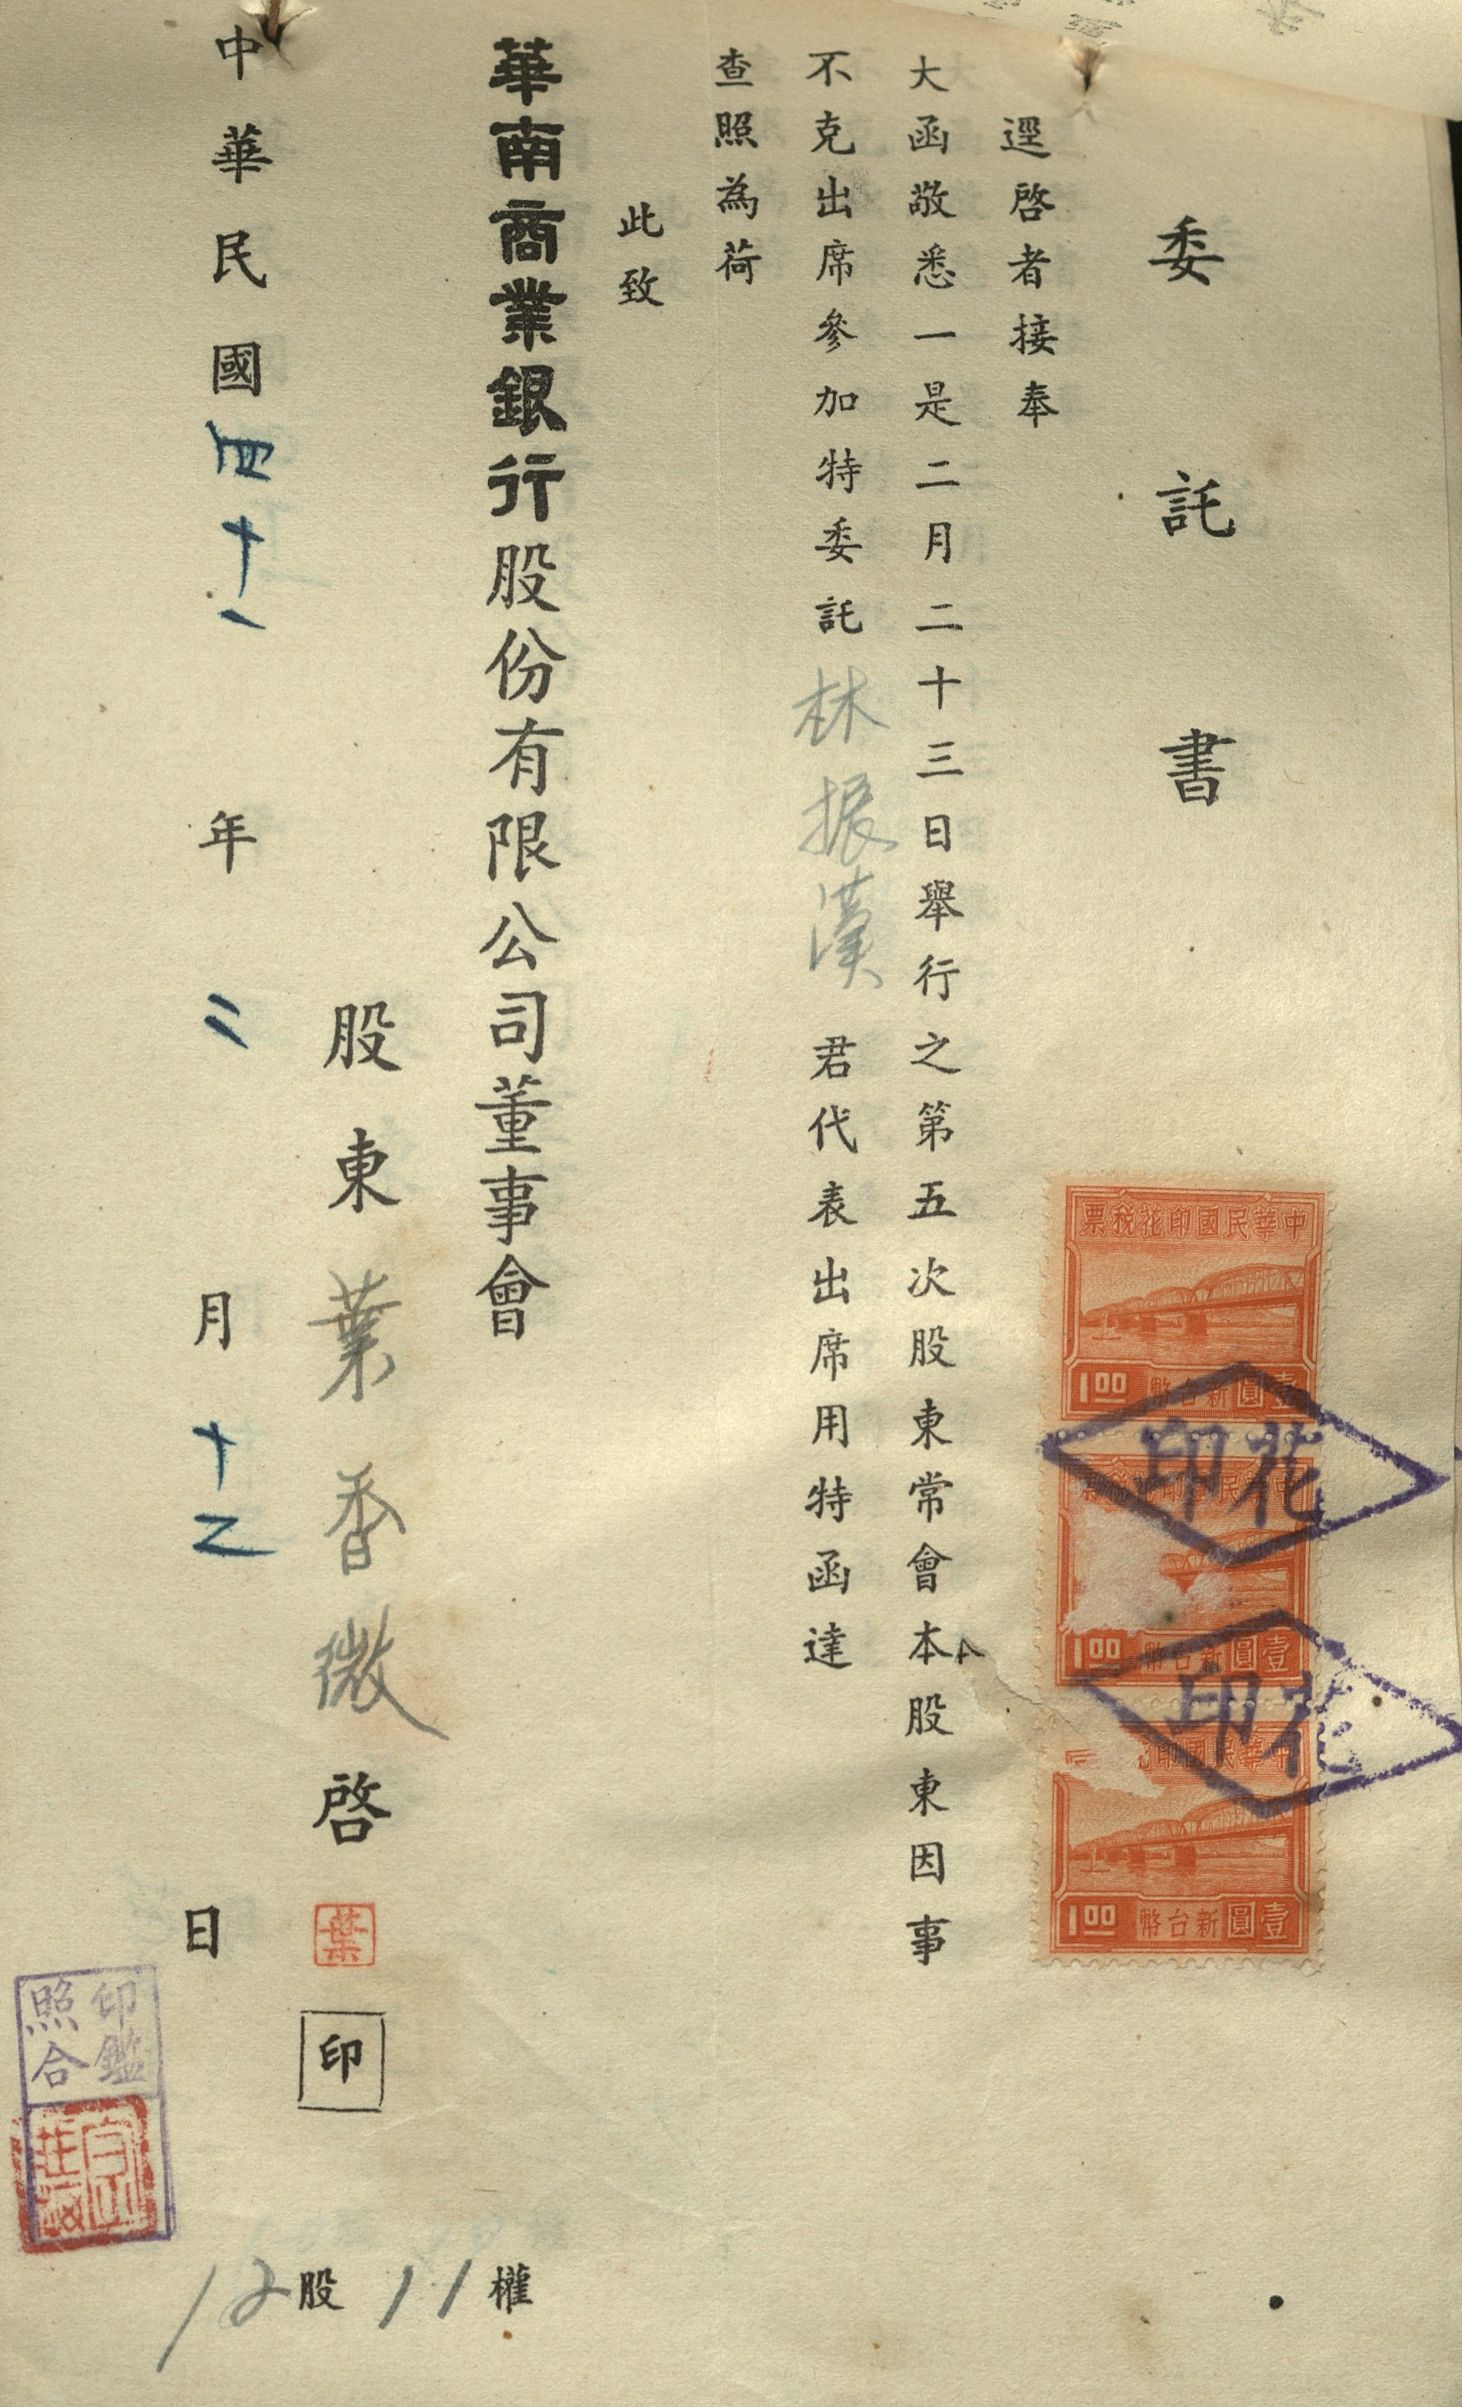 委託書
逕啓者接奉
大函敬悉一是二月二十三日舉行之第五次股東常會本股東因事
不克出席參加特委託林振漢君代表出席用特函達
查照為荷
此致
華南商業銀行股份有限公司董事會
股東葉香微啓
葉
印
中華民國四十一年二月十二日
12股11權
印鑑
照合
中華民國印花稅票
1.00 新台幣壹圓
花印
1.00 新台幣壹圓
花印
中華民國印花稅票
1.00 新台幣壹圓